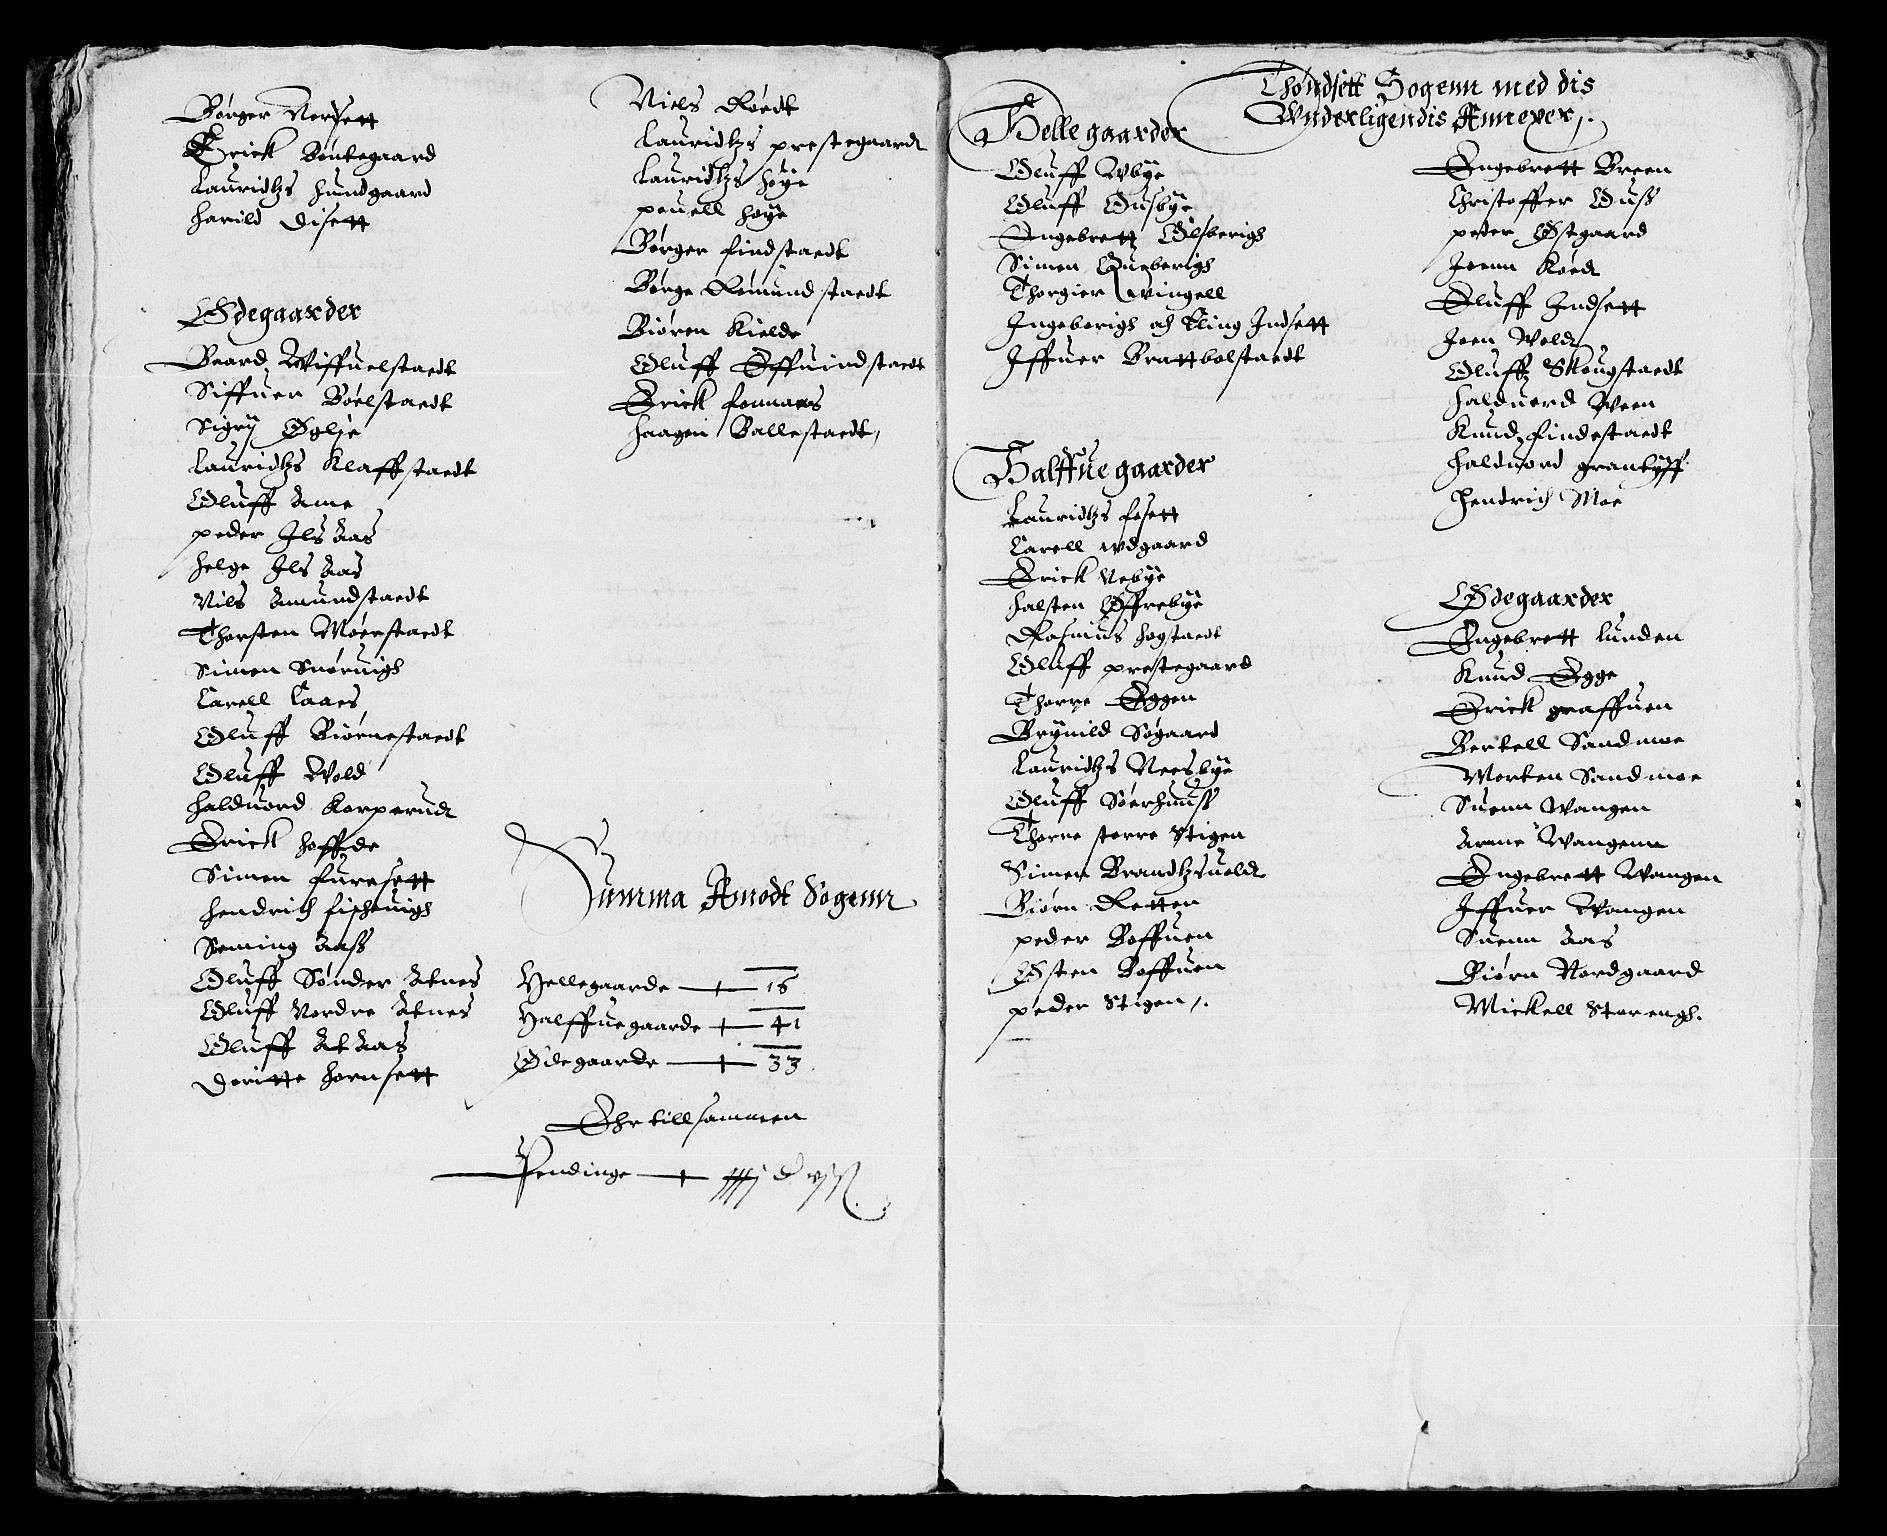 Børger Norsett
Erick Bentegaard
Lauridtzs Hundgaard
Harild Disett
Ødegaarder
Baard Wiffuelstaedt
Siffuer Bøelstaedt
Sigrij Øglje
Lauridtzs Klaffstaedt
Oluff Ame
peder Ils Aas
Helge Ils Aas
Nils Amundstaedt
Thorsten Moerstaedt
Simen Snøruigh
Carell Caaes
Oluff Biørnestaedt
Oluff Wold
Halduord Korperudt
Erick Hoffde
Simen Furesett
Hendrich Fischuigh
Seming Aass
Oluff Sønder Atnes
Oluff Nordre Atnes
Oluff At Aas
Doritte Hornsett
Niels Røedt
Lauridtzs prestegaardt
Lauridtzs Høye
pouell Høye
Børger Findstaedt
Børge Remundstaedt
Biøren Kielde
Oluff Effuindstaedt
Erick Fonnaes
Haagen Ballestaedt,
Summa Amodt Sogenn
Hellegaarde 16
Halffuegaarde 41
Ødegaarde 33
Ehr tillsammen
Pendinge
Thøndsett Sogenn med dis
Wnderligendis Annexer,.
Helle gaarder
Oluff Wbye
Oluff Ousbye
Engebrett Olsberigh
Simen Oueberigh
Thorgier Wingell
Ingeberigh och Elling Indsett
Iffuer Brattbolstaedt
Halffue gaarder
Lauridtzs Fosett
Carell Wdgaard
Erick Nebye
Halsten Offrebye
Rasmus Hogstaedt
Oluff prestegaard
Thorre Eggen
Brynild Søgaard
Lauridtzs Neesbye
Oluff Søerhuuss
Thorre storre Stigen
Simen Brandtzuoldt
Biørn Retten
peder Boffuen
Østen Boffuen
peder Stigen,.
Engebrett Breen
Christoffer Ouss
peder Østgaard
Joenn Røedt
Oluff Indsett
Joen Woldt
Oluff Skougstaedt
Halduord Ween
Knud Findestaedt
Halduord
Hendrich Moe
Ødegaarder
Engebrett Lunden
Knud Egge
Erick graffuen
Bertell Sandmoe
Morten Sandmoe
Suenn Wangen
Arme Wangenn
Engebrett Wangen
Iffuer Wangen
Suenn Aas
Biørn Nordgaard
Mickell Storengh.